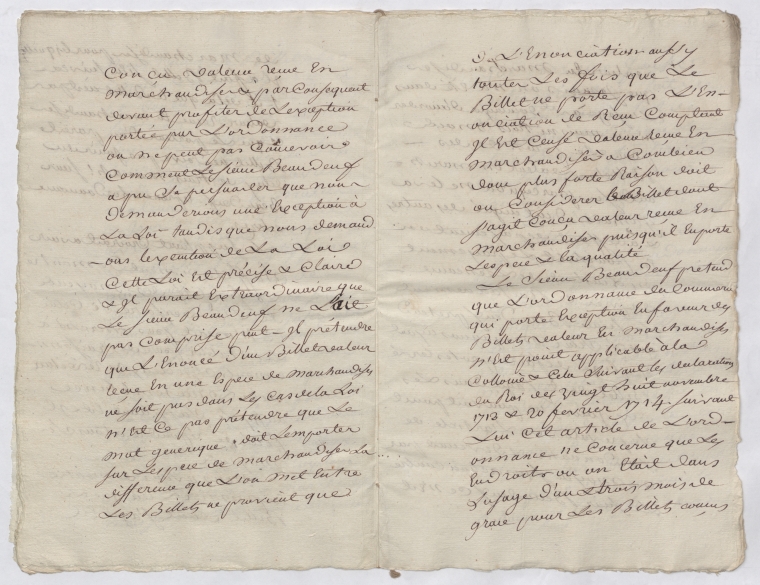 Conçu valeur recue En
marchandises & par Consequent
devant profiter de L'exception
portée par L'ordonnance
on ne peut pas Concevoir
Comment Le Sieur Beaudeuf
a pu Se persuader que nous
demanderions une Exception à
La Loi tandis que nous demand
-ons l'execution de La Loi
Cette Loi Est précise & Claire
& Il parait Extraordinaire que
Le Sieur Beaudeuf ne L'ait
pas Comprise peut-Il prétendre
que L'Enoncé d'un Billet valeur
recue En une Espece de marchandises
ne soit pas dans Les Cas de la Loi
n'est Ce pas prétendre que Le
mot generique doit L'emporter
sur L'espece de marchandises La
difference que L'on met Entre
Les Billets ne provient que
de L'Enonciation aussy
toutes Les fois que Le
Billet ne porte pas L'En-
onciation de Recu Comptant
Il Est Censé valeur recue En
marchandises a Combien
donc plus forte Raison doit
on Considerer le Billet dont
s'agit Conçu valeur recue En
marchandises puisqu'il En porte
L'espece & la qualité
Le Sieur Beaudeuf pretend
que L'ordonnance du Commerce
qui porte Exception En faveur des
Billets valeur En marchandises
n'Est point applicable à la
Colonie & Cela Suivant les declarations
du Roi des vingt huit novembre
1713 & 20 fevrier 1714. Suivant
Lui Cet article de L'ord-
onnance ne Concerne que Les
Endroits ou on Etait dans
L'usage d'un & trois mois de
grace pour Les Billets conçus